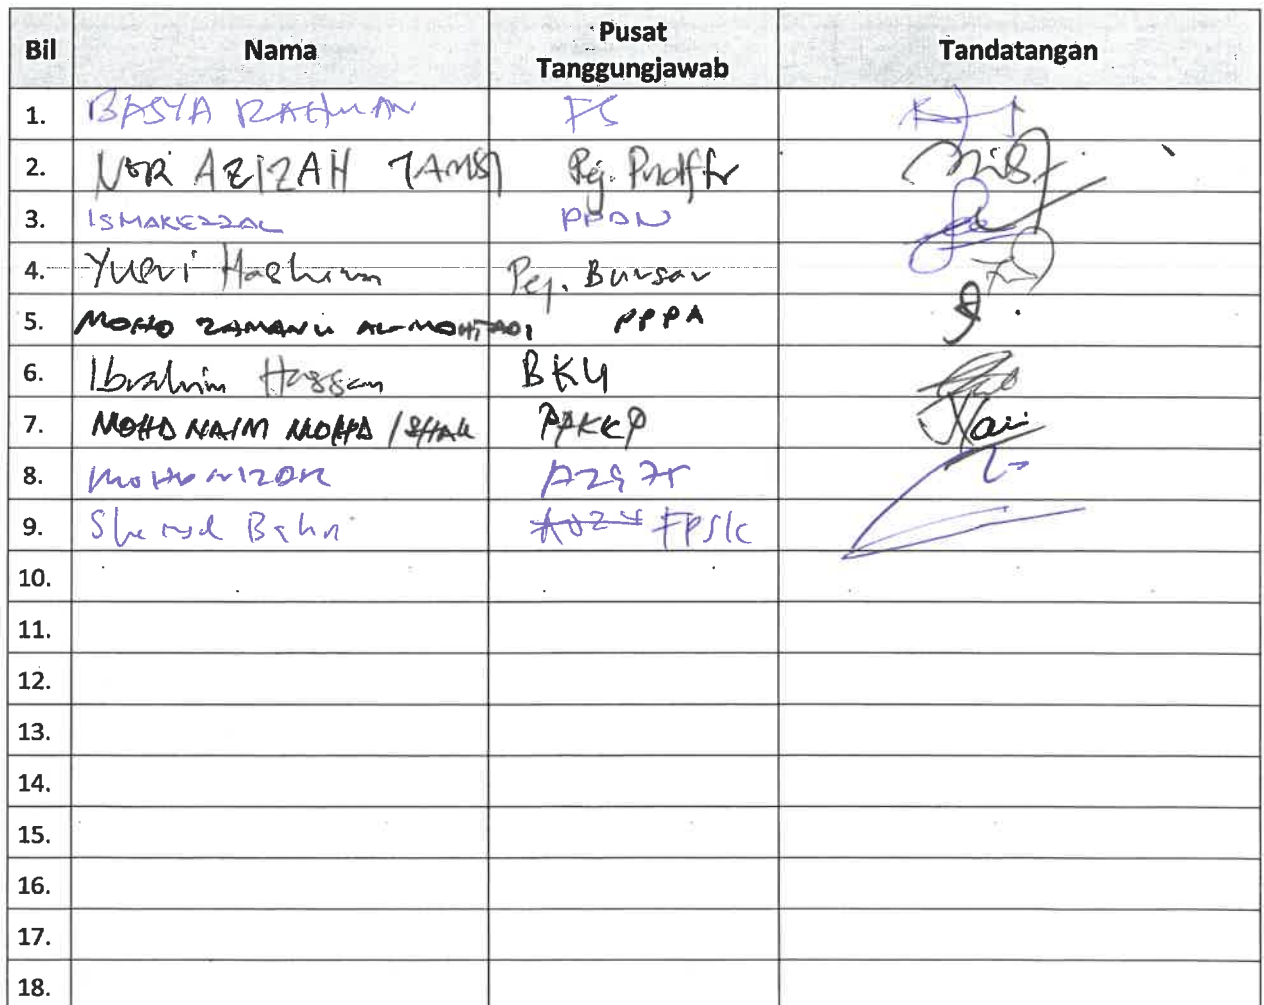 Bil Nama Pusat Tanggungjawab Tandatangan
1. BASYA RAHMAN FS
2. NOR AZIZAH TAMSI Pej.
3. ISMAKEZZAL PPDN
4. Yusri Hashim Pej. Bursar
5. MOHD ZAMANU AL-MOHTADI PPPA
6. Ibrahim Hassan BKU
7. MOHD NAIM MOHD ISHAK PPKKP
8. MOHD NIZOR
9. Bahri FPSK
10.
11.
12.
13.
14.
15.
16.
17.
18.